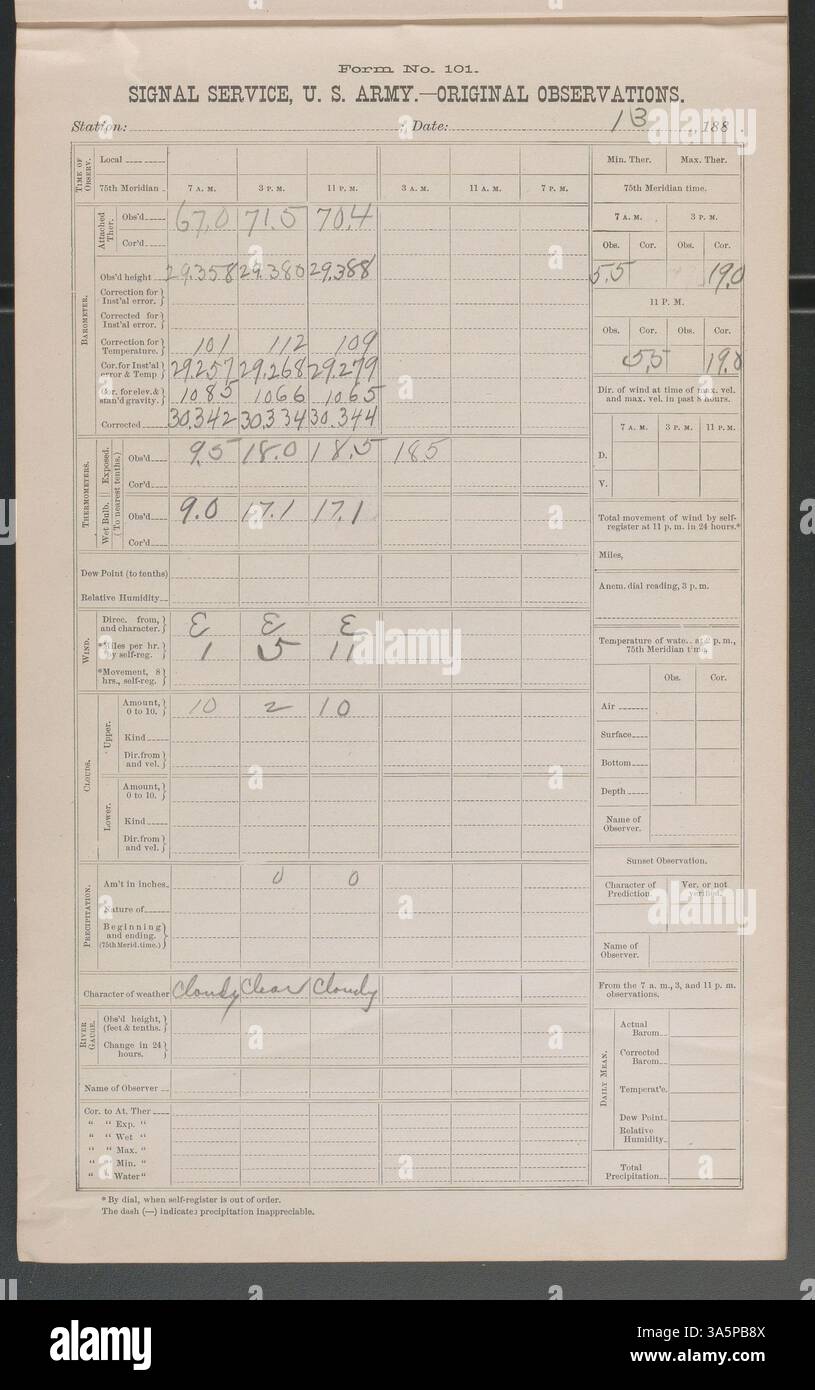 Form No. 101.
SIGNAL SERVICE, U. S. ARMY.—ORIGINAL OBSERVATIONS.
Station: ; Date: 13 , 188 .
TIME OF OBSERV.
Local
75th Meridian 7 A. M. 3 P. M. 11 P. M. 3 A. M. 11 A. M. 7 P. M.
BAROMETER.
Attached Ther.
Obs'd 67.0 71.5 70.4
Cor'd
Obs'd height 29.358 29.380 29.388
Correction for Inst'al error.
Corrected for Inst'al error.
Correction for Temperature. 101 112 109
Cor. for Inst'al error & Temp 29.257 29.268 29.279
Cor. for elev. & stan'd gravity. 1085 1066 1065
Corrected 30.342 30.334 30.344
THERMOMETERS.
(To nearest tenths.)
Exposed.
Obs'd 9.5 18.0 18.5 185
Cor'd
Wet Bulb.
Obs'd 9.0 17.1 17.1
Cor'd
Dew Point (to tenths)
Relative Humidity
WIND.
Direc. from, and character. E E E
*Miles per hr. by self-reg. 1 5 11
*Movement, 8 hrs., self-reg.
CLOUDS.
Upper.
Amount, 0 to 10. 10 2 10
Kind
Dir. from and vel.
Lower.
Amount, 0 to 10.
Kind
Dir. from and vel.
PRECIPITATION.
Am't in inches. 0 0
Nature of
Beginning and ending. (75th Merid. time.)
Character of weather Cloudy Clear Cloudy
RIVER GAUGE.
Obs'd height, (feet & tenths.)
Change in 24 hours.
Name of Observer
Cor. to At. Ther
" " Exp. "
" " Wet "
" " Max. "
" " Min. "
" " Water "
* By dial, when self-register is out of order.
The dash (—) indicates precipitation inappreciable.
Min. Ther. Max. Ther.
75th Meridian time.
7 A. M. 3 P. M.
Obs. Cor. Obs. Cor.
5.5 19.0
11 P. M.
Obs. Cor. Obs. Cor.
5.5 19.0
Dir. of wind at time of max. vel. and max. vel. in past 8 hours.
7 A. M. 3 P. M. 11 P. M.
D.
V.
Total movement of wind by self-register at 11 p. m. in 24 hours.*
Miles,
Anem. dial reading, 3 p. m.
Temperature of water at 2 p. m., 75th Meridian time.
Obs. Cor.
Air
Surface
Bottom
Depth
Name of Observer.
Sunset Observation.
Character of Prediction. Ver. or not verified.
Name of Observer.
From the 7 a. m., 3, and 11 p. m. observations.
DAILY MEAN.
Actual Barom.
Corrected Barom.
Temperat'e.
Dew Point.
Relative Humidity.
Total Precipitation.
alamy
Image ID: 3A5PB8X
www.alamy.com